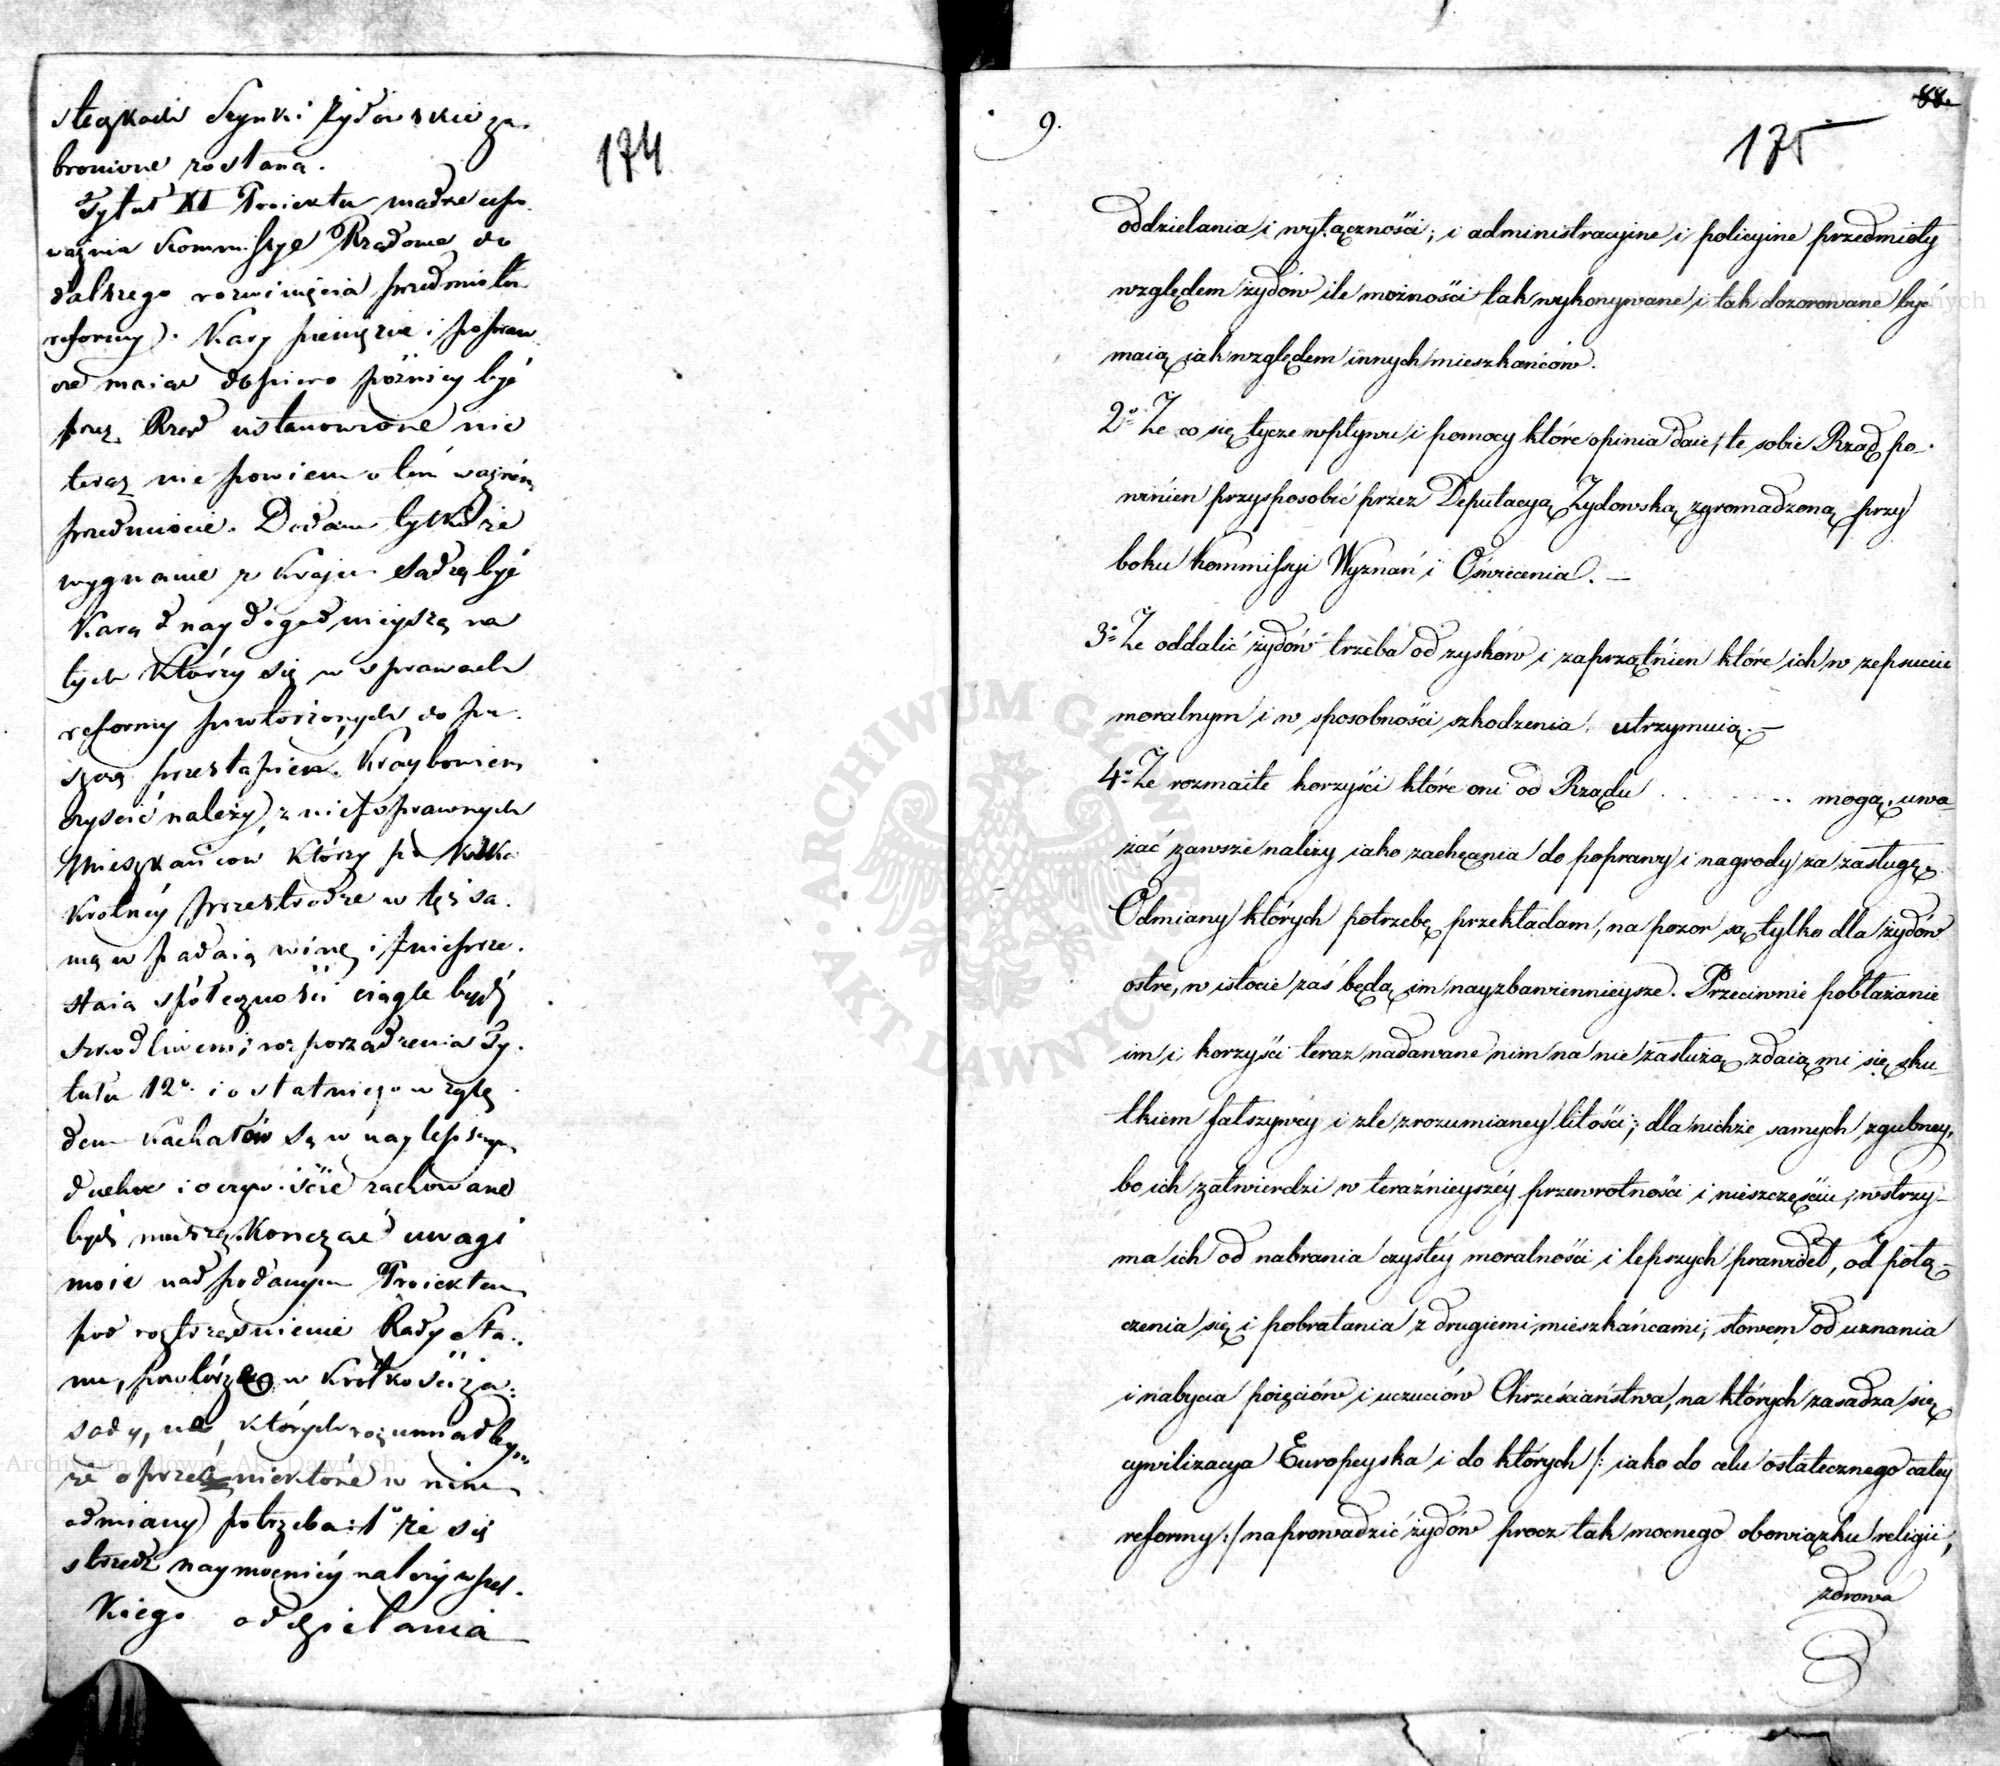 174
steczkach Szynki Żydowskie za-
bronione zostaną.
Tytuł XI Proiektu mądrze upo-
ważnia Kommissye Rządowe do
dalszego rozwinięcia przedmiotu
reformy. Kary pieniężne i popraw-
cze maiąc dopiero późniey być
przez Rząd ustanowione nic
teraz nie powiem o tém ważném
przedmiocie. Dodam tylko że
wygnanie z Kraju sądzę być
Karą naydogodnieyszą na
tych Którzy się w sprawach
reformy powtórzonych dopu-
szczą przestępień. Kray bowiem
czyścić należy z niepoprawnych
Mieszkańców Którzy po kilka
Krotnéy przestrodze w tęż sa-
mą wpadaią winę i nieprze-
staią społeczności ciągle bydź
szkodliwemi; rozporządzenia Ty-
tułu 12º i ostatniego wzglę-
dem Kahałów są w naylepszym
duchu i oczywiście zachowane
bydź muszą. Kończąc uwagi
moie nad podanym Proiektem
pod roztrząśnienie Rady Sta-
nu, powtórzę w Krótkości za-
sady, na których rozumiałbym
że oprzeć niektóre w nim
odmiany potrzeba: 1º że się
strzedz naymocniéy należy wszel-
kiego oddzielania
9.
88.
175
oddzielania i wyłączności; i administracyine i policyine przedmioty
względem żydów ile możności tak wykonywane i tak dozorowane być
maią iak względem innych mieszkańców.
2º Że co się tycze wpływu i pomocy które opinia daie, te sobie Rząd po-
winien przysposobić przez Deputacyą Żydowską zgromadzoną przy
boku Kommissyi Wyznań i Oświecenia. —
3º Że oddalić żydów trzeba od zysków i zaprzątnień które ich w zepsuciu
moralnym i w sposobności szkodzenia utrzymuią. —
4º Że rozmaite korzyści które oni od Rządu . . . . . . . . mogą, uwa-
żać zawsze należy iako zachęcania do poprawy i nagrody za zasługę.
Odmiany których potrzebę przekładam, na pozor są tylko dla żydów
ostre, w istocie zaś będą im nayzbawiennieysze. Przeciwnie pobłażanie
im i korzyści teraz nadawane nim na nie zasłużą zdaią mi się sku-
tkiem fałszywéy i źle zrozumianey litości; dla nichże samych zgubney,
bo ich zatwierdzi w teraźnieyszéy przewrotności i nieszczęściu, wstrzy-
ma ich od nabrania czystéy moralności i lepszych prawideł, od połą-
czenia się i pobratania z drugiemi mieszkańcami, słowem od uznania
i nabycia poięciów i uczuciów Chrześciaństwa, na których zasadza się
cywilizacya Europeyska i do których /: iako do celu ostatecznego całey
reformy :/ naprowadzić żydów procz tak mocnego obowiązku religii,
zdrowa
ARCHIWUM GŁÓWNE AKT DAWNYCH
Archiwum Główne Akt Dawnych
Archiwum Główne Akt Dawnych